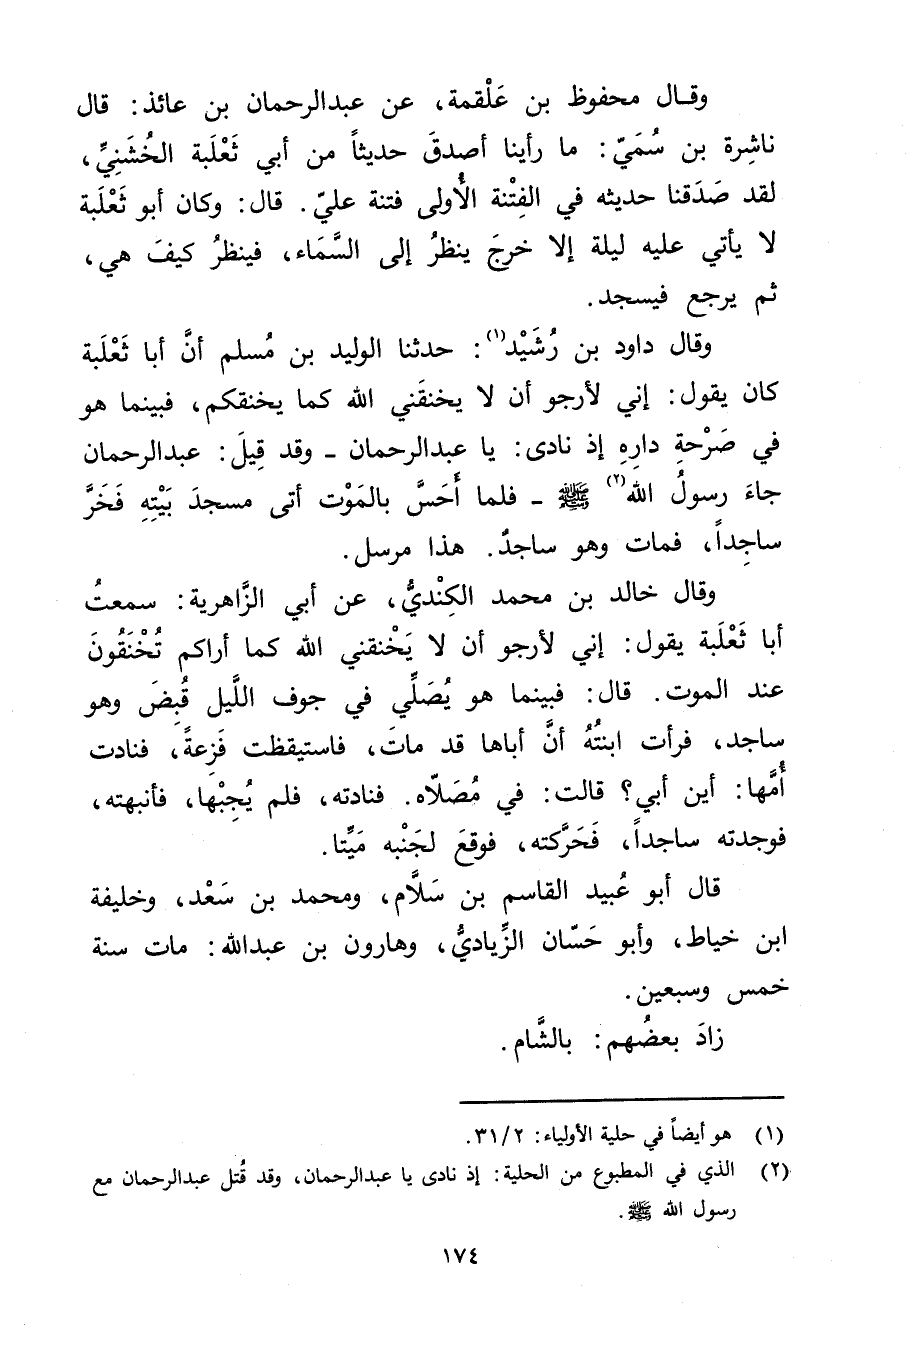 وقـال محفوظ بن عَلْقمة، عن عبدالرحمان بن عائذ: قال
ناشِرة بن سُمَيّ: ما رأينا أصدقَ حديثاً من أبي ثَعْلَبة الخُشَنِيِّ،
لقد صَدَقنا حديثه في الفِتْنة الأُولى فتنة عليّ. قال: وكان أبو ثَعْلَبة
لا يأتي عليه ليلة إلا خرجَ ينظرُ إلى السَّمَاء، فينظرُ كيفَ هي،
ثم يرجع فيسجد.
وقال داود بن رُشَيْد(١): حدثنا الوليد بن مُسلم أنَّ أبا ثَعْلَبة
كان يقول: إني لأرجو أن لا يخنقَني الله كما يخنقكم، فبينما هو
في صَرْحةِ دارِهِ إذ نادى: يا عبدالرحمان ـ وقد قِيلَ: عبدالرحمان
جاءَ رسولُ الله(٢) ﷺ ـ فلما أَحَسَّ بالمَوْت أتى مسجدَ بَيْتِهِ فَخَرَّ
ساجِداً، فمات وهو ساجدٌ. هذا مرسل.
وقال خالد بن محمد الكِنْديُّ، عن أبي الزَّاهرية: سمعتُ
أبا ثَعْلَبة يقول: إني لأرجو أن لا يَخْنقني الله كما أراكم تُخْنَقُونَ
عند الموت. قال: فبينما هو يُصَلِّي في جوف اللَّيل قُبِضَ وهو
ساجد، فرأت ابنتُهُ أنَّ أباها قد ماتَ، فاستيقظت فَزِعةً، فنادت
أُمَّها: أين أبي؟ قالت: في مُصَلاّه. فنادته، فلم يُجِبْها، فأنبهته،
فوجدته ساجداً، فَحَرَّكته، فوقعَ لجَنْبه مَيِّتا.
قال أبو عُبيد القاسم بن سَلَّام، ومحمد بن سَعْد، وخليفة
ابن خياط، وأبو حَسّان الزِّياديُّ، وهارون بن عبدالله: مات سنة
خمس وسبعين.
زادَ بعضُهم: بالشَّام.
(١) هو أيضاً في حلية الأولياء: ٣١/٢.
(٢) الذي في المطبوع من الحلية: إذ نادى يا عبدالرحمان، وقد قُتل عبدالرحمان مع
رسول الله ﷺ.
١٧٤